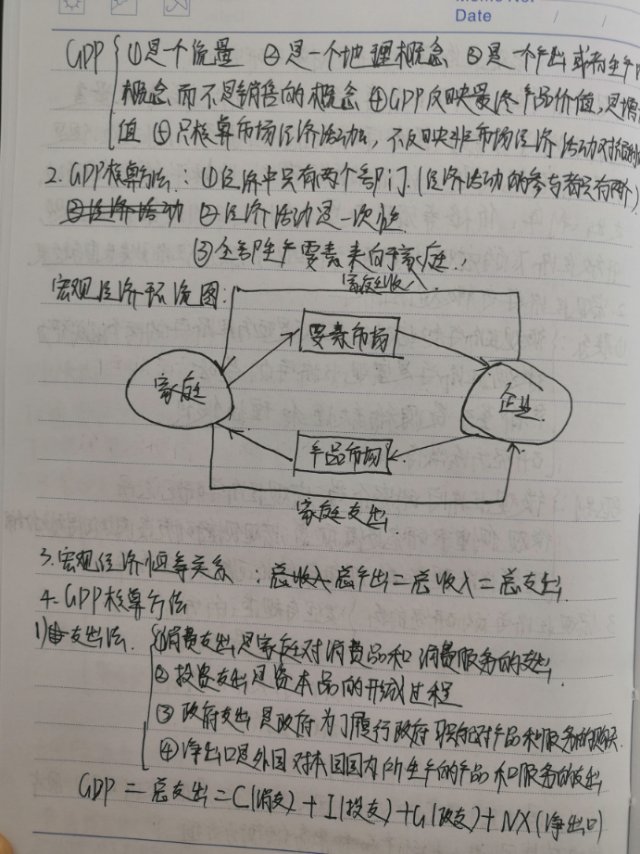 Date / /
GDP ①是一个流量 ②是一个地理概念 ③是一个产出或者生产
概念而不是销售的概念 ④GDP反映最终产品价值,是增
值 ⑤只核算市场经济活动,不反映非市场经济活动
2.GDP核算方法:①经济中只有两个部门(经济活动的参与者只有两个)
②经济活动 ②经济活动是一次性
③全部生产要素来自于家庭.
宏观经济环流图:
家庭收入
要素市场
家庭
企业
产品市场
家庭支出
3.宏观经济恒等关系:总收入 总产出=总收入=总支出
4.GDP核算方法
1)支出法. ①消费支出是家庭对消费品和消费服务的支出.
②投资支出是资本品的形成过程
③政府支出是政府为了履行政府职能对产品和服务的购买
④净出口是外国对本国国内所生产的产品和服务的支出
GDP=总支出=C(消支)+I(投支)+G(政支)+NX(净出口)